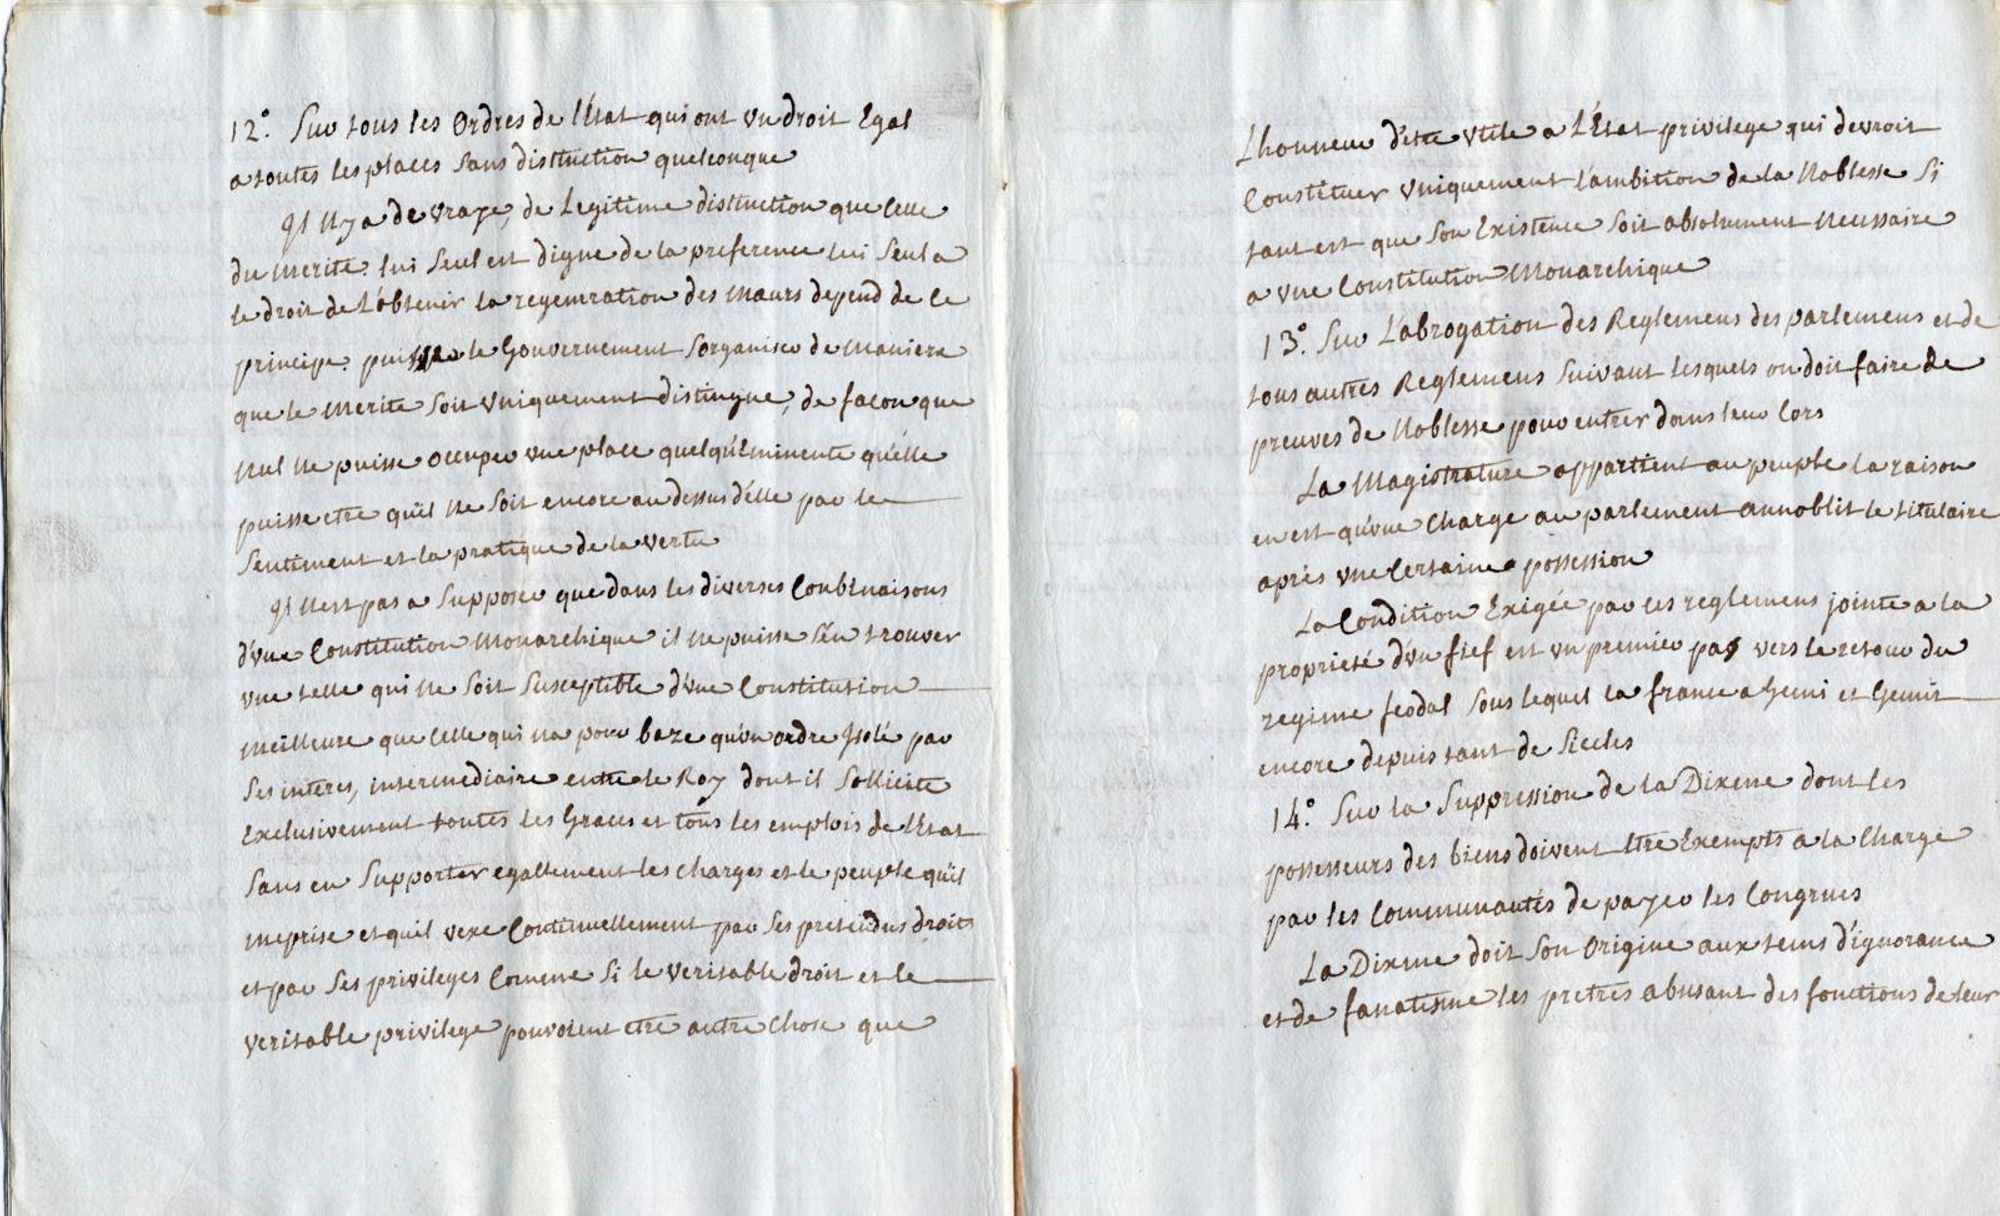 12°. Sur tous les Ordres de l'État qui ont un droit Egal
a toutes les places sans distinction quelconque
Il n'y a de vraye, de Legitime distinction que celle
du merite. lui seul est digne de la preference lui seul a
le droit de l'obtenir la regeneration des mœurs depend de ce
principe. puisse le Gouvernement s'organiser de maniere
que le merite soit uniquement distingué, de facon que
nul ne puisse occuper une place quelqu'Eminente qu'elle
puisse etre qu'il ne soit encore au dessus d'elle par le
sentiment et la pratique de la vertu
Il n'est pas a supposer que dans les diverses Conbinaisons
d'une Constitution Monarchique il ne puisse s'en trouver
une telle qui ne soit susceptible d'une Constitution
meilleure que celle qui n'a pour baze qu'un ordre Isolé par
ses interes, intermediaire entre le Roy dont il sollicite
Exclusivement toutes les Graces et tous les emplois de l'Etat
sans en supporter egallement les charges et le peuple qu'il
meprise et quil vexe Continuellement par ses pretendus droits
et par ses privileges Comme si le veritable droit et le
veritable privilege pouvoient etre autre chose que
L'honneur d'etre utile a l'Etat privilege qui devroit
Constituer uniquement l'ambition de la Noblesse si
tant est que son Existence soit absolument necessaire
a une Constitution Monarchique
13°. Sur L'abrogation des Reglemens des parlemens et de
tous autres Reglemens suivant lesquels on doit faire de
preuves de Noblesse pour entrer dans leur Cors
La Magistrature appartient au peuple la raison
en est qu'une charge au parlement annoblit le titulaire
aprés une Certaine possession
La Condition Exigée par les reglemens jointe a la
proprieté d'un fief est un premier pas vers le retour du
regime feodal sous lequel la france a Gemi et Gemit
encore depuis tant de siecles
14°. Sur la Suppression de la Dixme dont les
possesseurs des biens doivent Etre Exempts a la Charge
par les Communautés de payer les Congrues
La Dixme doit son Origine aux tems d'ignorance
et de fanatisme les pretres abusant des fonctions de leur